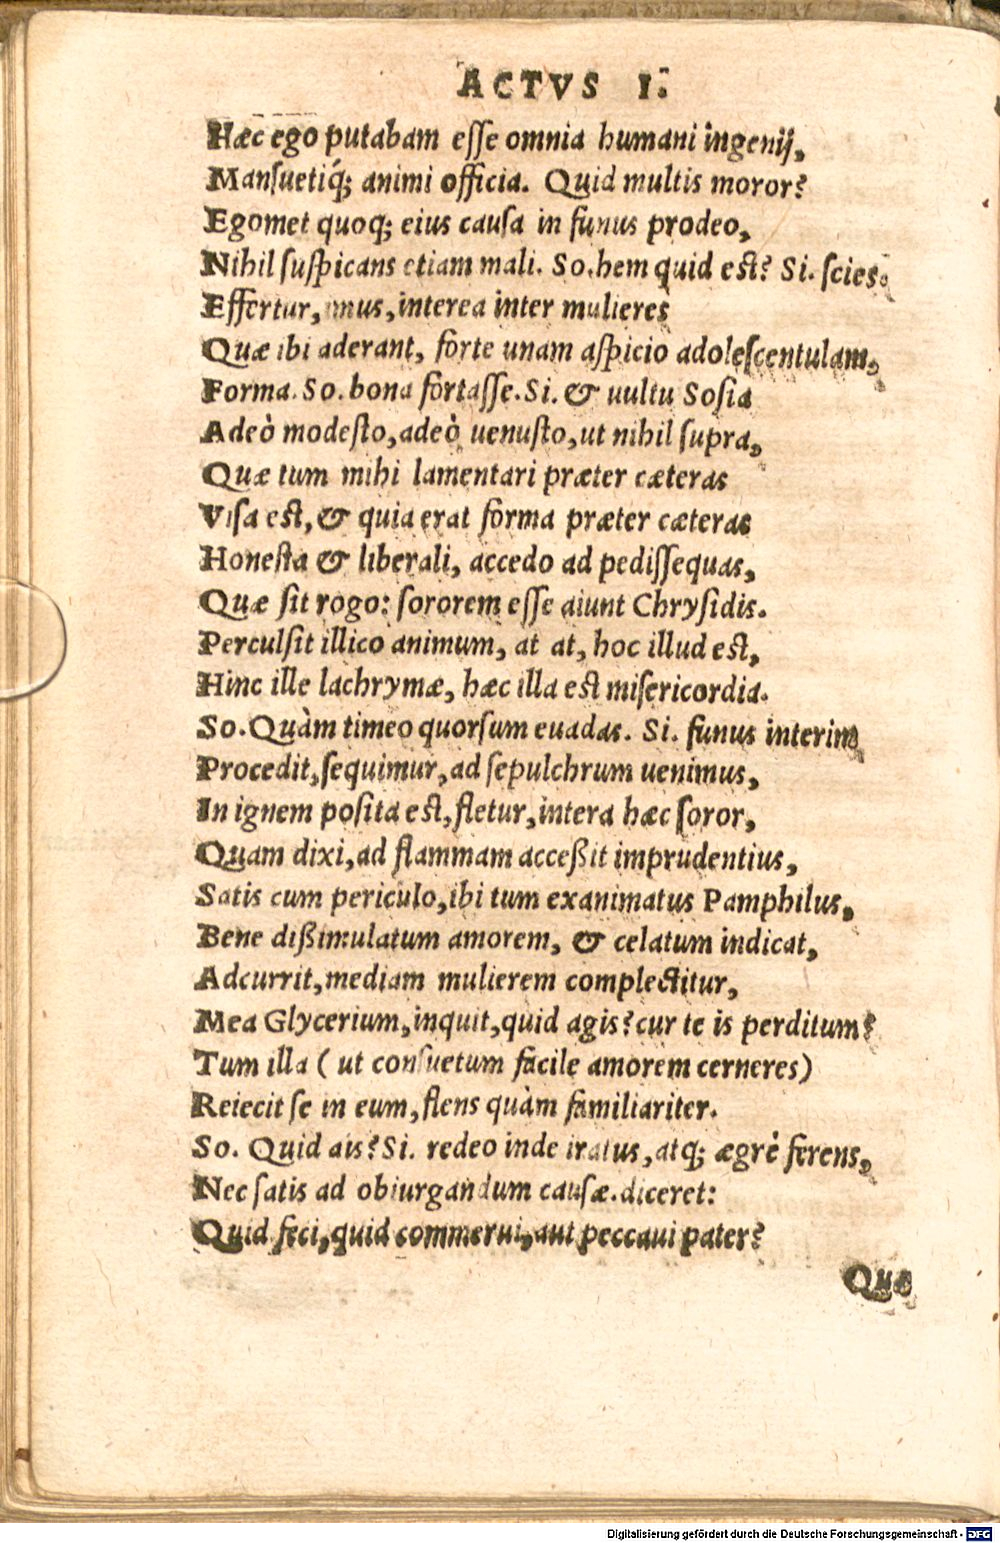 ACTVS I.
Hæc ego putabam eſſe omnia humani ingenij,
Manſuetiq́; animi officia. Quid multis moror?
Egomet quoq; eius cauſa in funus prodeo,
Nihil ſuſpicans etiam mali. So. hem quid eſt? Si. ſcies.
Effertur, imus, interea inter mulieres
Quæ ibi aderant, forte unam aſpicio adoleſcentulam,
Forma. So. bona fortaſſe. Si. & uultu Soſia
Adeò modeſto, adeò uenuſto, ut nihil ſupra,
Quæ tum mihi lamentari præter cæteras
Viſa eſt, & quia erat forma præter cæteras
Honeſta & liberali, accedo ad pediſſequas,
Quæ ſit rogo: ſororem eſſe aiunt Chryſidis.
Perculſit illico animum, at at, hoc illud eſt,
Hinc ille lachrymæ, hæc illa eſt miſericordia.
So. Quàm timeo quorſum euadas. Si. funus interim
Procedit, ſequimur, ad ſepulchrum uenimus,
In ignem poſita eſt, fletur, intera hæc ſoror,
Quam dixi, ad flammam acceßit imprudentius,
Satis cum periculo, ibi tum exanimatus Pamphilus,
Bene dißimulatum amorem, & celatum indicat,
Adcurrit, mediam mulierem complectitur,
Mea Glycerium, inquit, quid agis? cur te is perditum?
Tum illa ( ut conſuetum facile amorem cerneres)
Reiecit ſe in eum, flens quàm familiariter.
So. Quid ais? Si. redeo inde iratus, atq; ægrè ferens,
Nec ſatis ad obiurgandum cauſæ. diceret:
Quid feci, quid commerui, aut peccaui pater?
Quæ
Digitalisierung gefördert durch die Deutsche Forschungsgemeinschaft - DFG